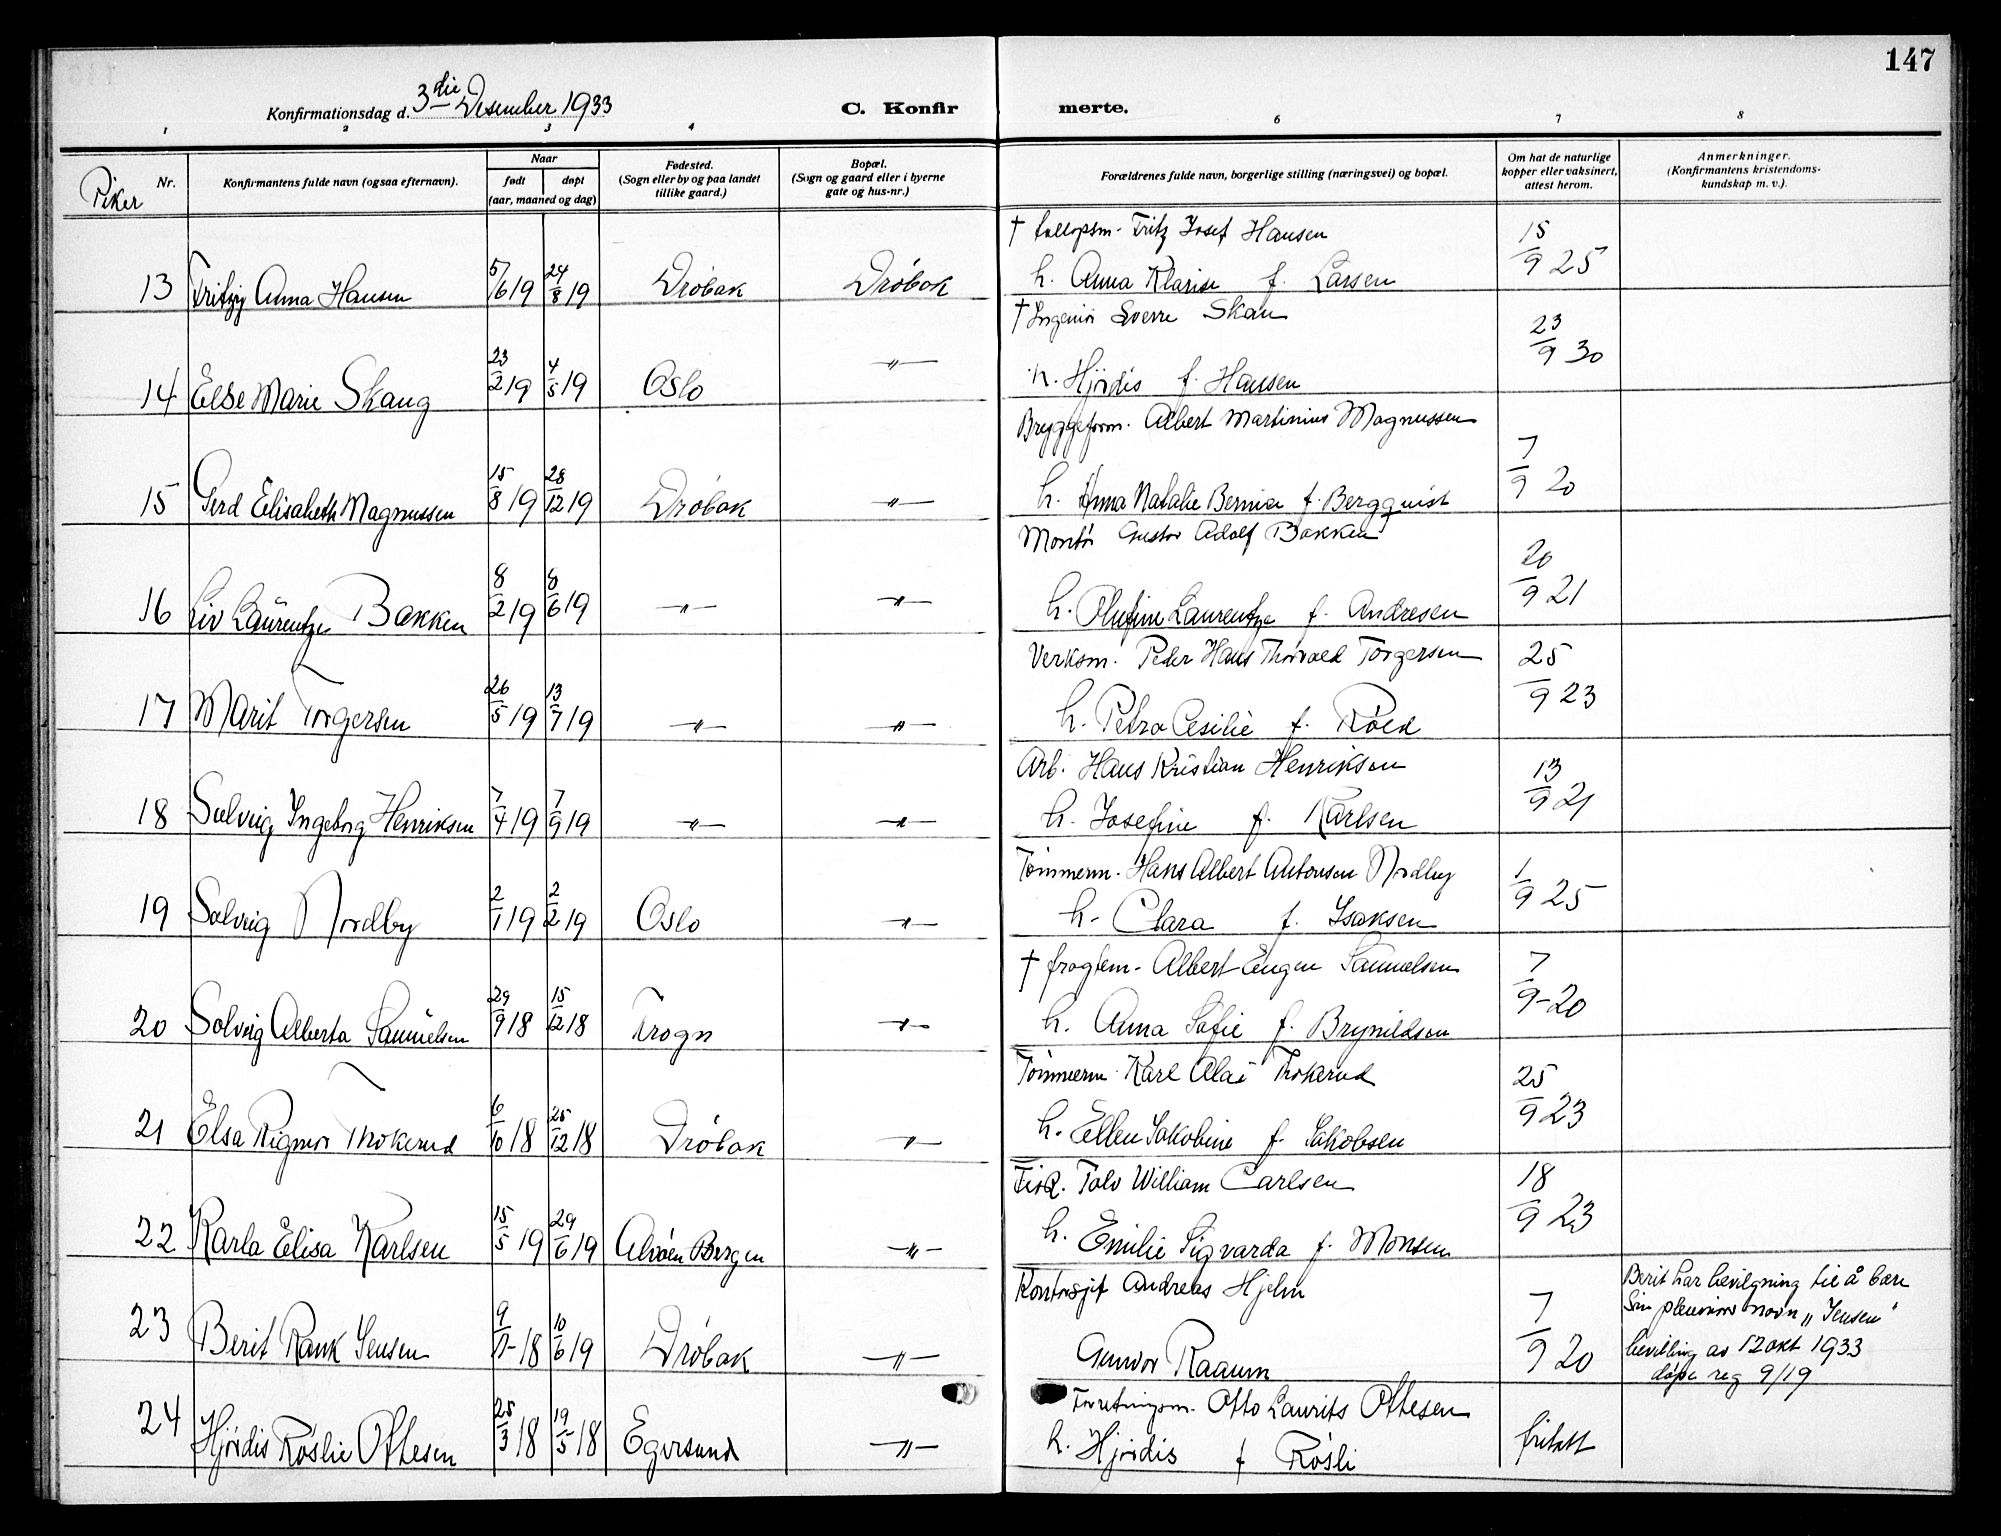 147
Konfirmationsdag d. 3die Desember 1933
C. Konfir merte.
1 2 3 4 6 7 8
Piker
Nr.
Konfirmantens fulde navn (ogsaa efternavn).
Naar
født døpt
(aar, maaned og dag)
Fødested.
(Sogn eller by og paa landet
tillike gaard.)
Bopæl.
(Sogn og gaard eller i byerne
gate og hus-nr.)
Forældrenes fulde navn, borgerlige stilling (næringsvei) og bopæl.
Om hat de naturlige
kopper eller vaksinert,
attest herom.
Anmerkninger.
(Konfirmantens kristendoms-
kundskap m. v.).
† Tollopsm. Fritz Josef Hansen
13 Fritzy Anna Hansen 5/6 19 24/8 19 Drøbak Drøbak h. Anna Klarise f. Larsen 15/9 25
† Ingeniør Sverre Skau
14 Else Marie Skaug 23/2 19 4/5 19 Oslo -"- h. Hjørdis f. Hansen 23/9 30
Bryggeform. Albert Martinius Magnussen
15 Gerd Elisabeth Magnussen 15/8 19 28/12 19 Drøbak -"- h. Anna Natalie Bernia f. Bergquist 7/9 20
Montør Gustav Adolf Bakken
16 Liv Laurentze Bakken 8/2 19 8/6 19 -"- -"- h. Olufine Laurentze f. Andresen 20/9 21
Verksm. Peder Hans Thorvald Torgersen
17 Marit Torgersen 26/5 19 13/7 19 -"- -"- h. Petra Cesilie f. Røed 25/9 23
Arb. Hans Kristian Henriksen
18 Solveig Ingeborg Henriksen 7/4 19 7/9 19 -"- -"- h. Josefine f. Karlsen 13/9 21
Tømmerm. Hans Albert Antonsen Nordby
19 Solveig Nordby 2/1 19 2/2 19 Oslo -"- h. Clara f. Isaksen 1/9 25
† fragtem. Albert Eugen Samuelsen
20 Solveig Alberta Samuelsen 29/9 18 15/12 18 Frogn -"- h. Anna Sofie f. Brynildsen 7/9-20
Tømmerm. Karl Olai Thokerud
21 Elsa Rigmor Thokerud 6/10 18 25/12 18 Drøbak -"- h. Ellen Jakobine f. Jakobsen 25/9 23
Fisk. Tolv William Carlsen
22 Karla Elisa Karlsen 15/5 19 29/6 19 Alvøen Bergen -"- h. Emilie Sigvarda f. Monsen 18/9 23
Kontorsjef Andreas Hjelm
23 Berit Rank Jensen 9/11-18 10/6 19 Drøbak -"- Gunvor Raaum 7/9 20
Berit har bevilgning til å bære
Sin pleiemors navn "Jensen"
bevilling av 12 okt 1933
døpe reg 9/19
Forretningsm. Otto Laurits Ottesen
24 Hjørdis Røslie Ottesen 25/3 18 19/5 18 Egersund -"- h. Hjørdis f Røsli fritatt